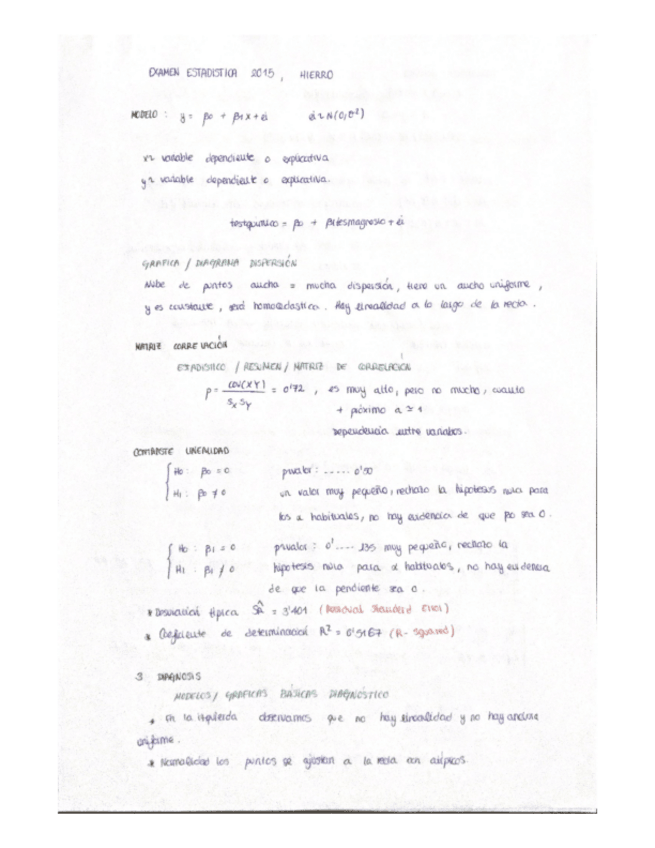 EXAMEN ESTADISTICA 2015, HIERRO
MODELO: y = β0 + β1X + εi    εi ~ N(0,σ²)
x ~ variable dependiente o explicativa
y ~ variable dependiente o explicativa.
testquimico = β0 + β1 tesmagnesio + εi
GRAFICA / DIAGRAMA DISPERSIÓN
Nube de puntos ancha = mucha dispersión, tiene un ancho uniforme,
y es constante, será homocedastica. Hay linealidad a lo largo de la recta.
MATRIZ CORRELACIÓN
ESTADISTICO / RESUMEN / MATRIZ DE CORRELACION
ρ = COV(XY) / Sx Sy = 0'72, es muy alto, pero no mucho, cuanto
+ próximo a ≃ 1
dependencia entre variables.
CONTRASTE LINEALIDAD
H0: β0 = 0    pvalor: ..... 0'50
H1: β0 ≠ 0    un valor muy pequeño, rechazo la hipotesis nula para
los α habituales, no hay evidencia de que β0 sea 0.
H0: β1 = 0    pvalor: 0'.... 135 muy pequeño, rechazo la
H1: β1 ≠ 0    hipotesis nula para α habituales, no hay evidencia
de que la pendiente sea 0.
* Desviación típica ŜR = 3'401 (Residual Standerd Error)
* Coeficiente de determinación R² = 0'5167 (R-squared)
3 DIAGNOSIS
MODELOS / GRAFICAS BÁSICAS DIAGNÓSTICO
* En la izquierda observamos que no hay linealidad y no hay anchura
uniforme.
* Normalidad los puntos se ajustan a la recta con atípicos.